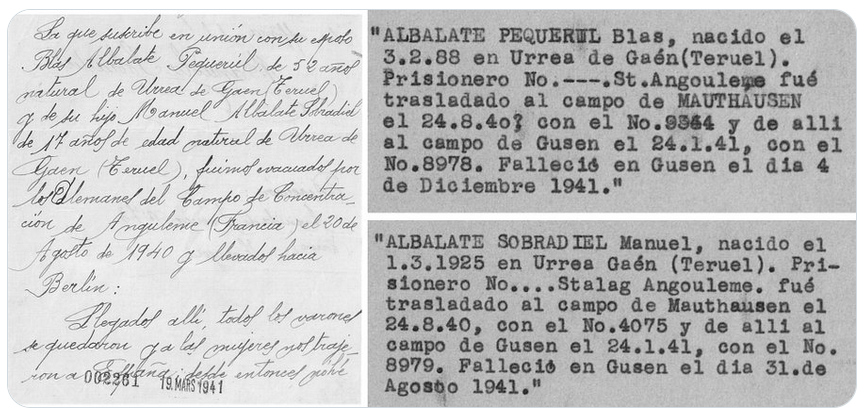 La que suscribe en unión con su esposo
Blas Albalate Pequerúl de 52 años
natural de Urrea de Gaen (Teruel)
y de su hijo Manuel Albalate Sobradiel
de 17 años de edad natural de Urrea de
Gaen (Teruel), fuimos evacuados por
los Alemanes del Campo de Concentra-
ción de Anguleme (Francia) el 20 de
Agosto de 1940 y llevados hacia
Berlín:
Llegados allí, todos los varones
se quedaron y a las mujeres nos traje-
ron a España; desde entonces
002261 19.MARS 1941
"ALBALATE PEQUERUL Blas, nacido el
3.2.88 en Urrea de Gaén(Teruel).
Prisionero No.---.St.Angouleme fué
trasladado al campo de MAUTHAUSEN
el 24.8.40, con el No.9344 y de alli
al campo de Gusen el 24.1.41, con el
No.8978. Falleció en Gusen el dia 4
de Diciembre 1941."
"ALBALATE SOBRADIEL Manuel, nacido el
1.3.1925 en Urrea Gaén (Teruel). Pri-
sionero No....Stalag Angouleme. fué
trasladado al campo de Mauthausen el
24.8.40, con el No.4075 y de alli al
campo de Gusen el 24.1.41, con el No.
8979. Falleció en Gusen el dia 31.de
Agosto 1941."